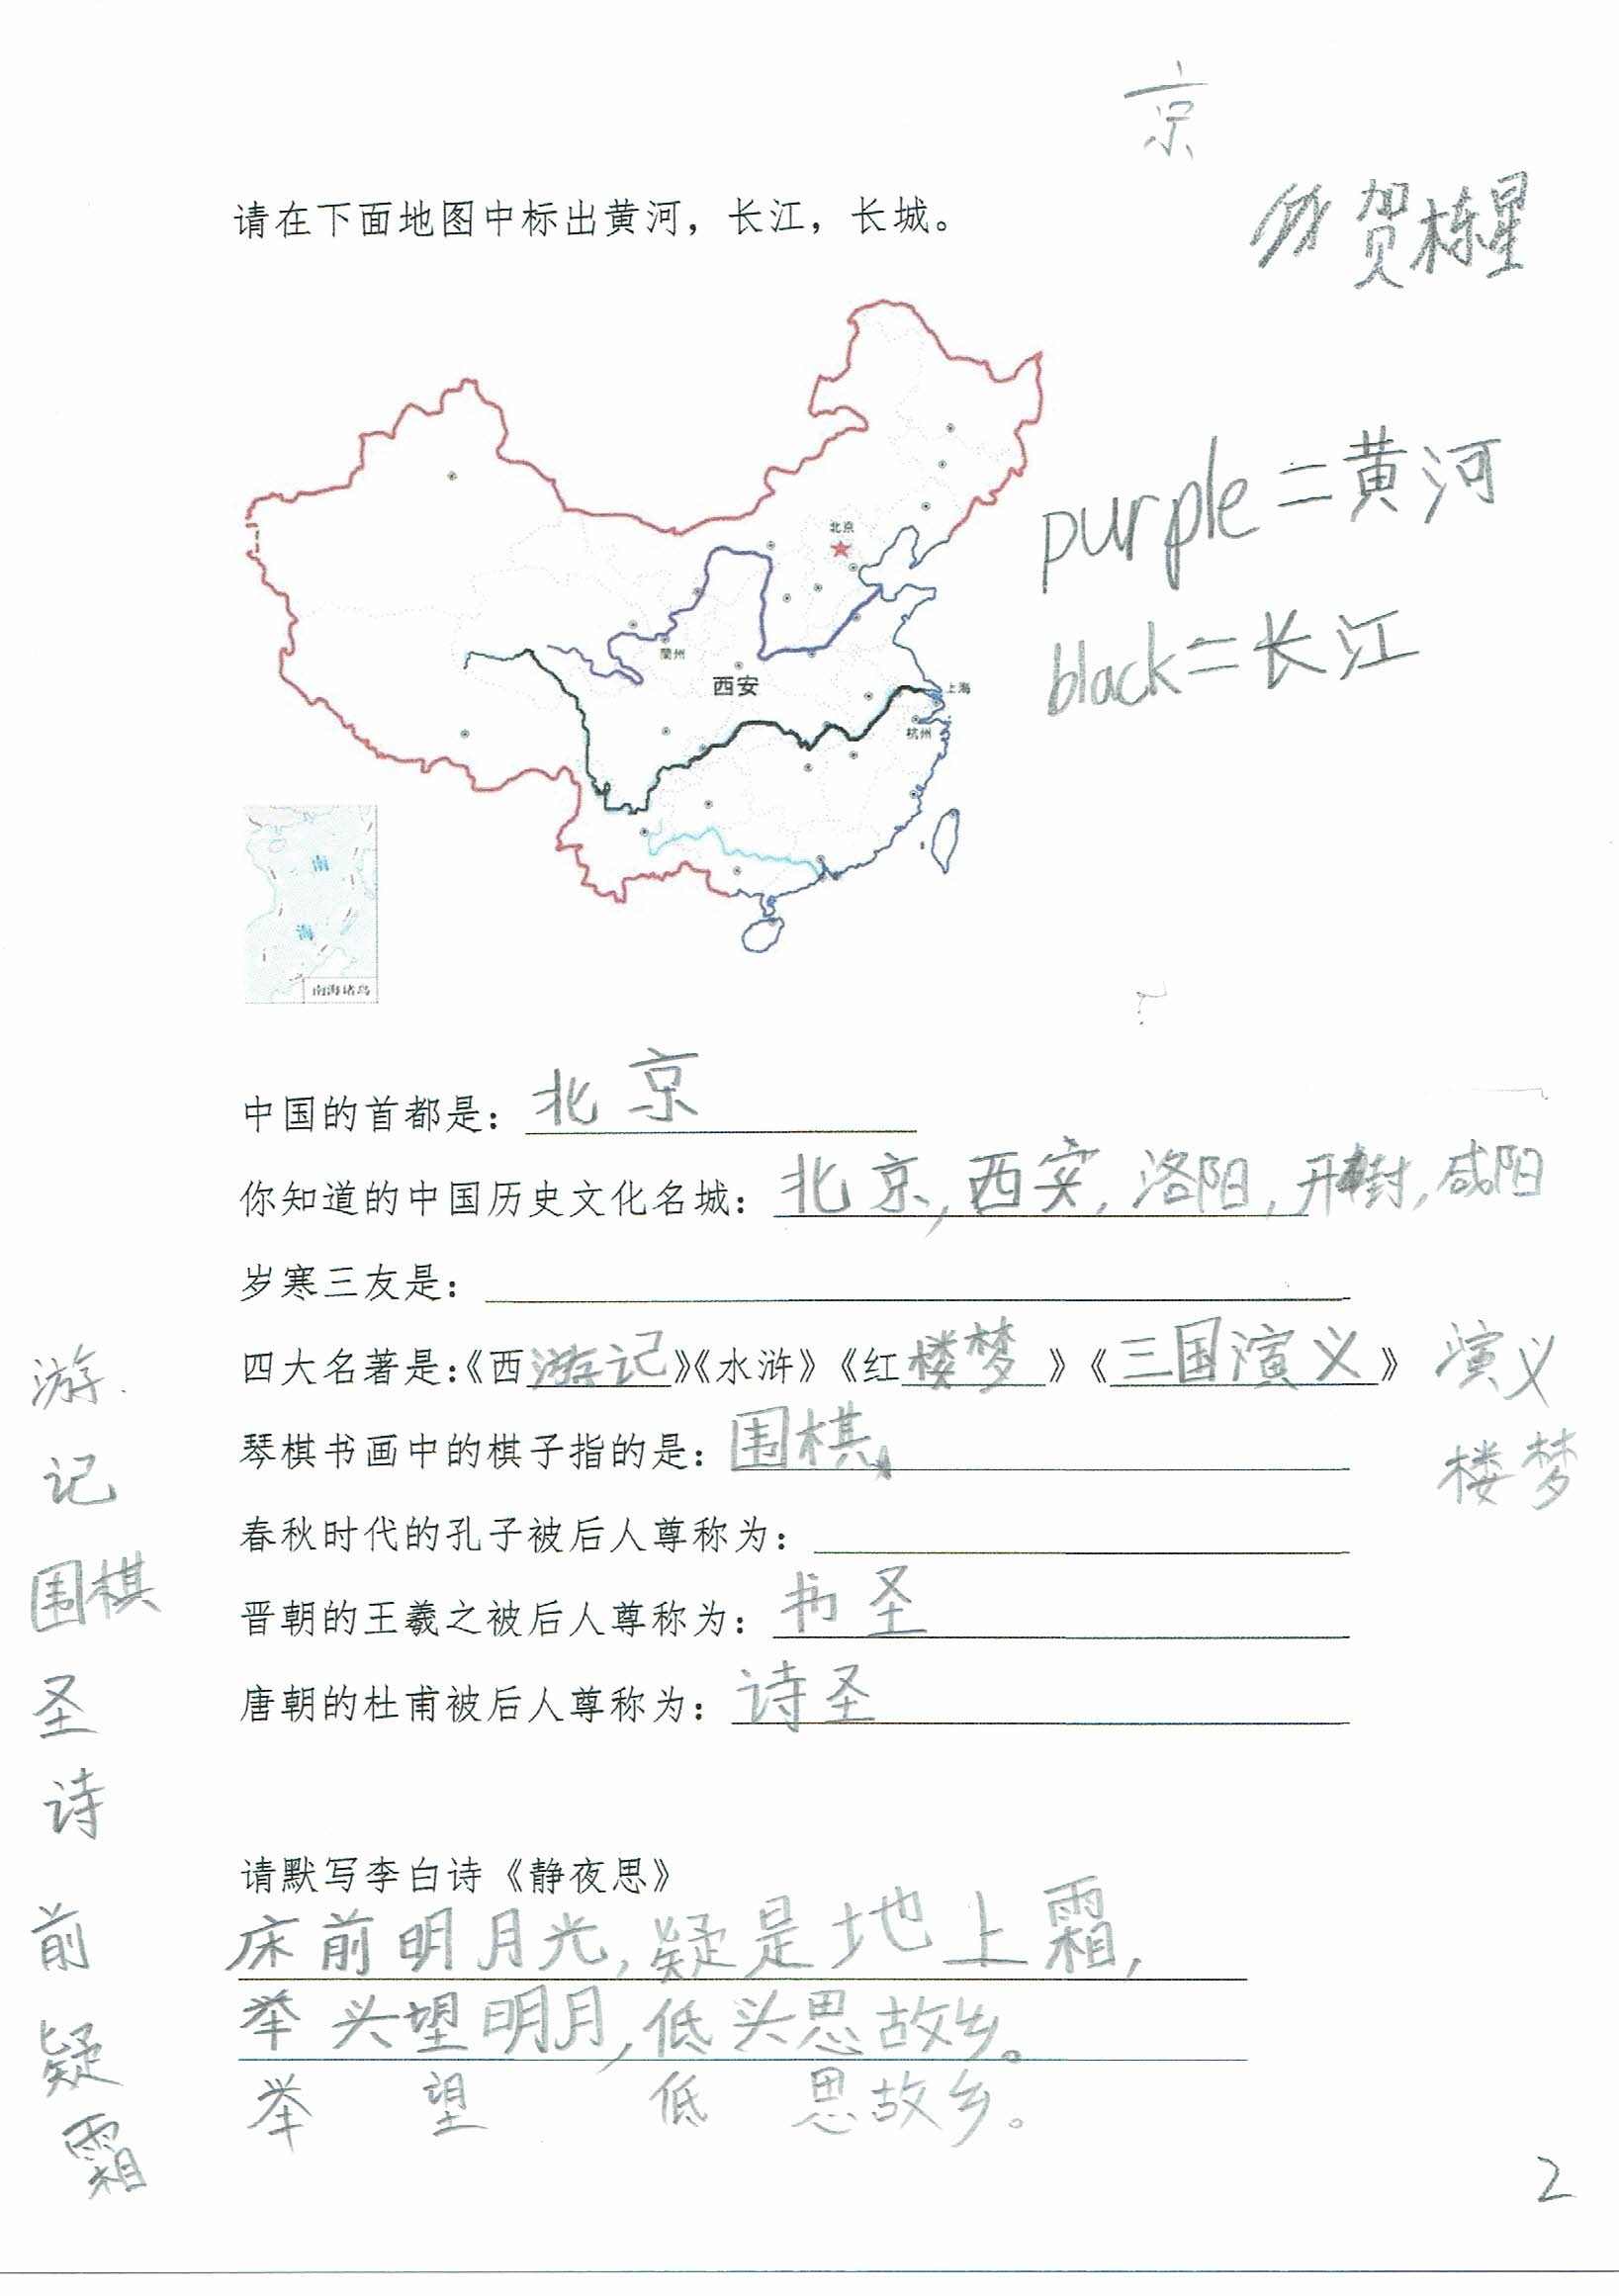 京
请在下面地图中标出黄河，长江，长城。
贺栋星
purple=黄河
black=长江
北京
蘭州
西安
上海
杭州
南
海
南海诸岛
中国的首都是：北京
你知道的中国历史文化名城：北京，西安，洛阳，开封，咸阳
岁寒三友是：
四大名著是：《西游记》《水浒》《红楼梦》《三国演义》 演义
游
琴棋书画中的棋子指的是：围棋
楼梦
记
春秋时代的孔子被后人尊称为：
围棋
晋朝的王羲之被后人尊称为：书圣
圣
唐朝的杜甫被后人尊称为：诗圣
诗
请默写李白诗《静夜思》
前
床前明月光，疑是地上霜，
举头望明月，低头思故乡。
疑
举 望 低 思故乡。
霜
2